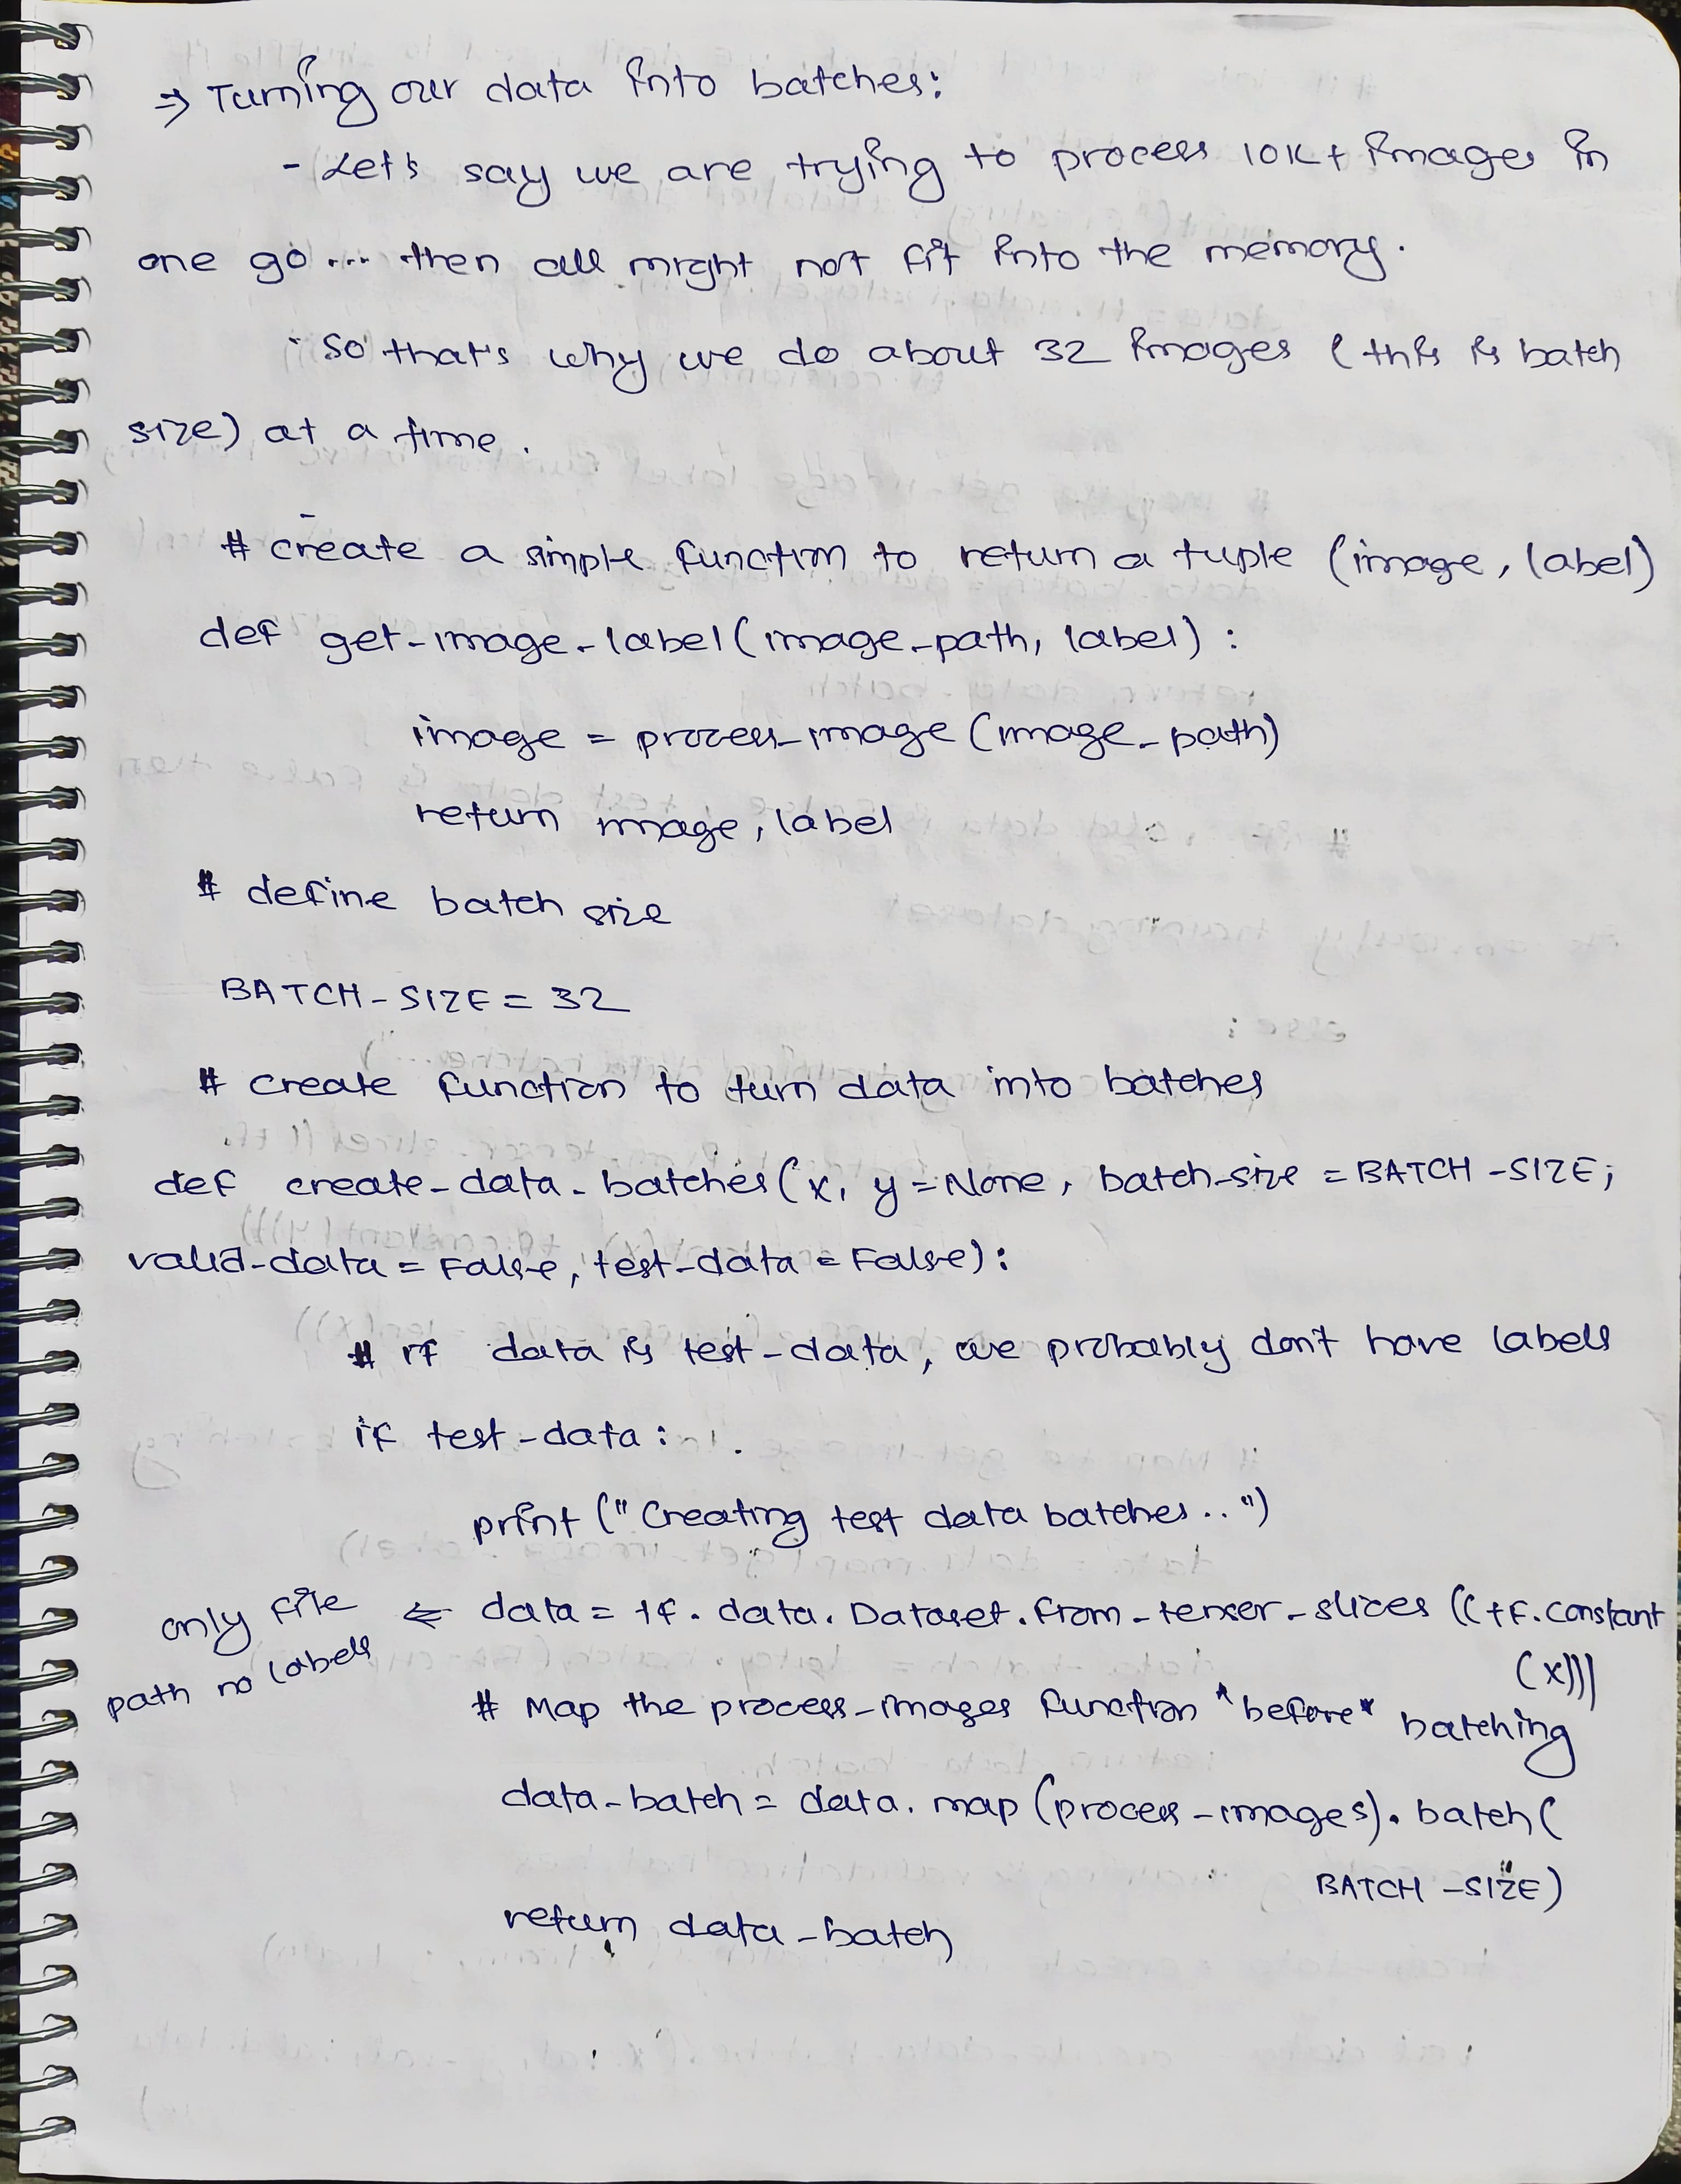 ⇒ Turning our data into batches:
- Let's say we are trying to process 10K+ images in
one go... then all might not fit into the memory.
- So that's why we do about 32 images (this is batch
size) at a time.
# create a simple function to return a tuple (image, label)
def get-image-label(image-path, label):
image = process-image(image-path)
return image, label
# define batch size
BATCH-SIZE = 32
# create function to turn data into batches
def create-data-batches(x, y=None, batch-size = BATCH-SIZE;
valid-data = False, test-data = False):
# if data is test-data, we probably don't have labels
if test-data:
print("Creating test data batches..")
only file ⇐ data = tf.data.Dataset.from-tensor-slices((tf.constant
path no labels
(x)))
# Map the process-images function *before* batching
data-batch = data.map(process-images).batch(
BATCH-SIZE)
return data-batch